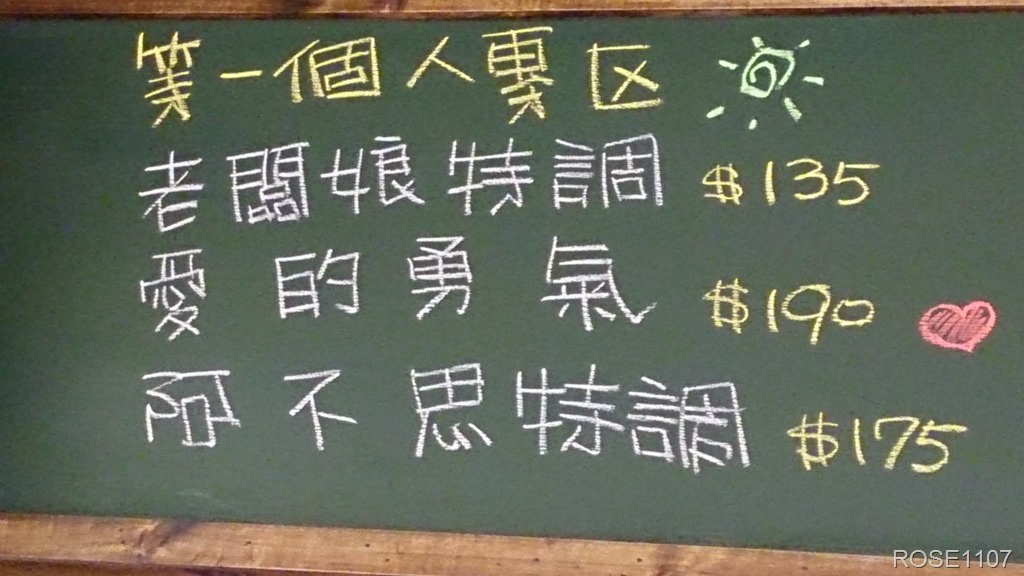 第一個人專区
老闆娘特調 $135
愛的勇氣 $190
阿不思特調 $175
ROSE1107